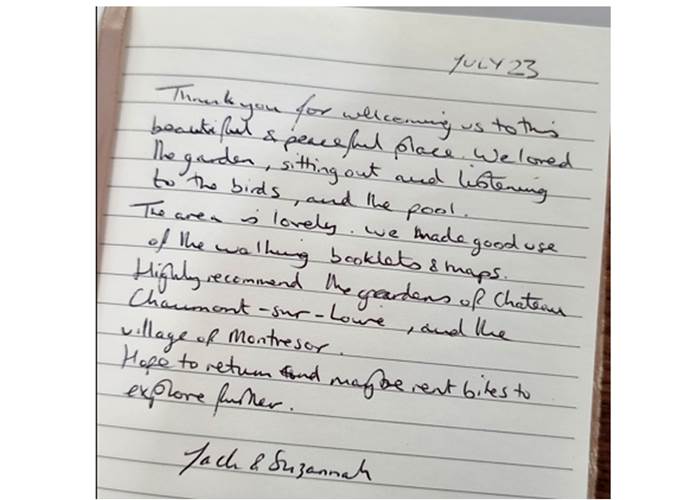 JULY 23
Thank you for welcoming us to this
beautiful & peaceful place. We loved
the garden, sitting out and listening
to the birds, and the pool.
The area is lovely. We made good use
of the walking booklets & maps.
Highly recommend the gardens of Chateau
Chaumont-sur-Loire, and the
village of Montresor.
Hope to return and maybe rent bikes to
explore further.
Jack & Suzannah